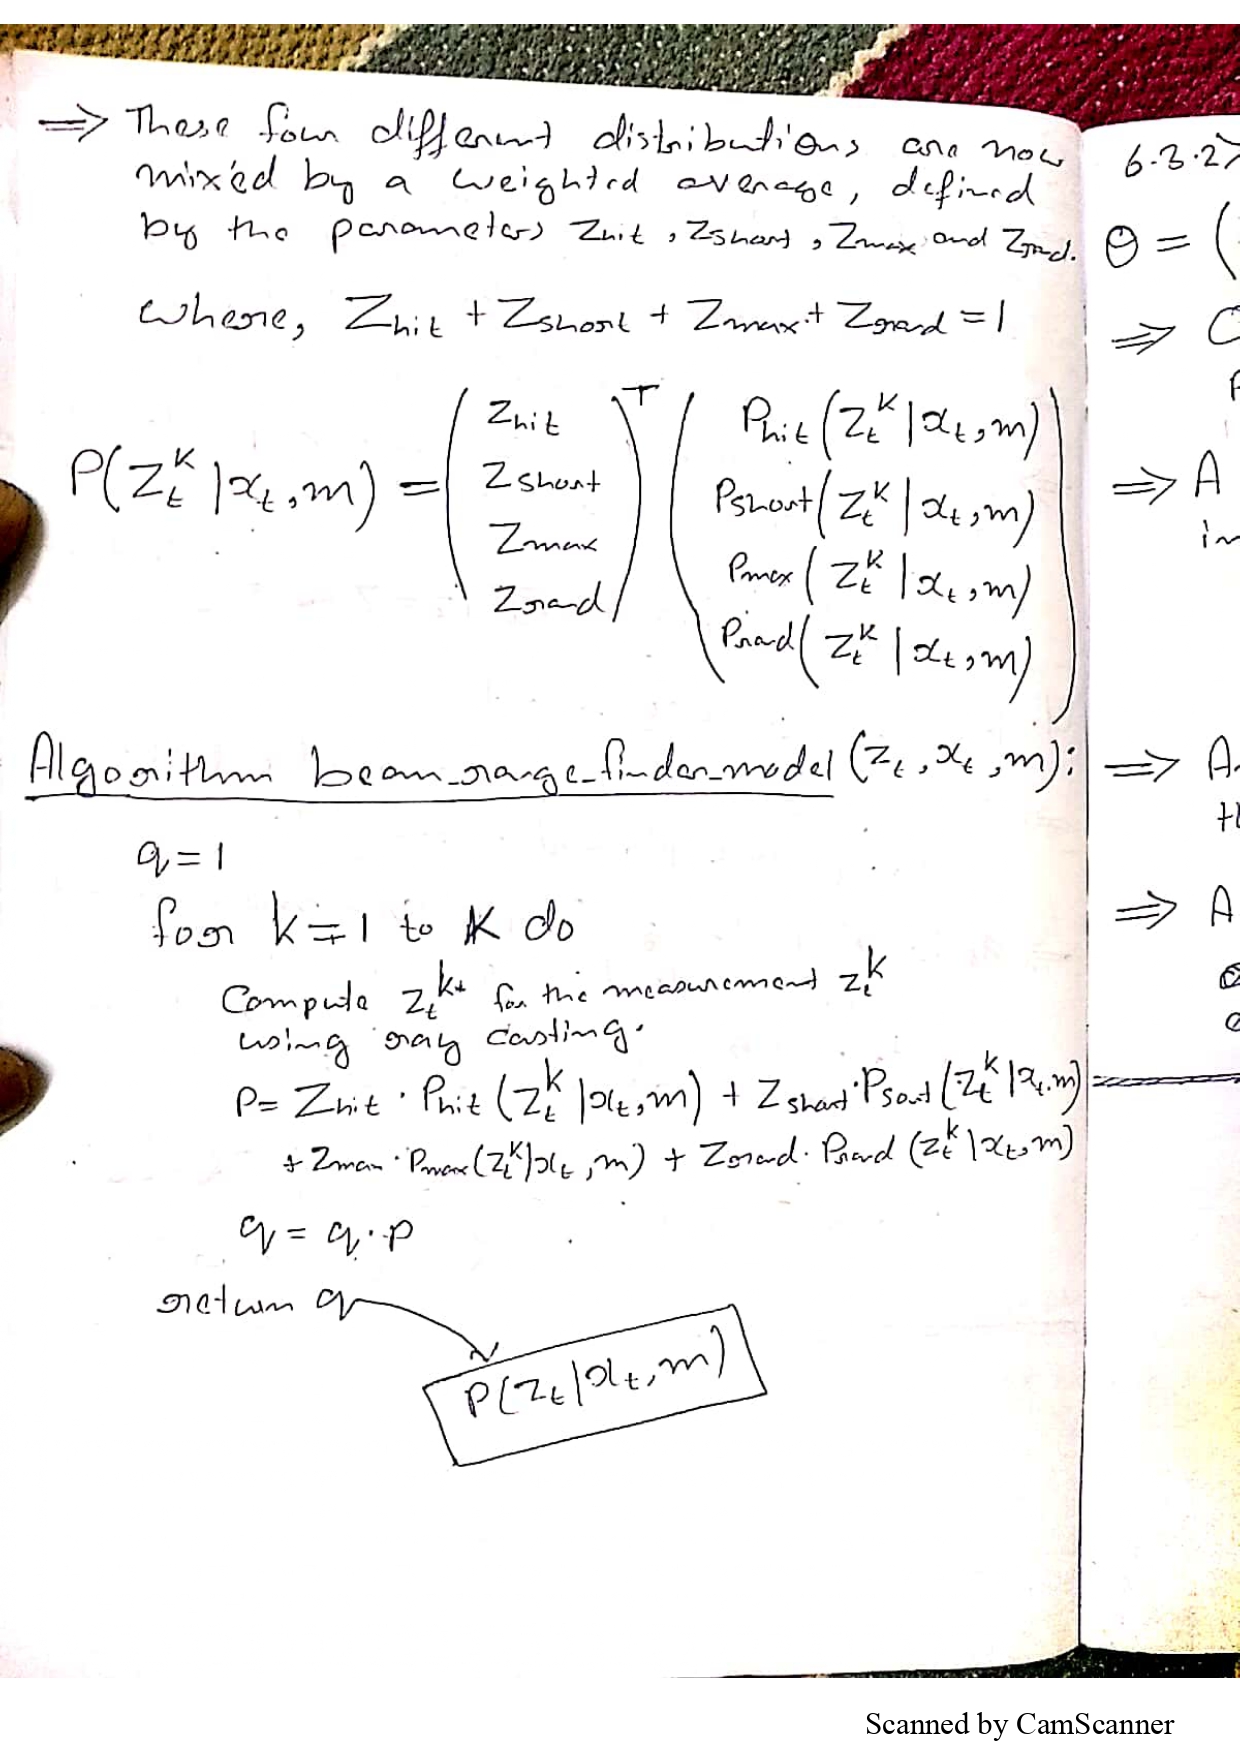 ⇒ These four different distributions are now
mixed by a weighted average, defined
by the parameters Zhit, Zshort, Zmax and Zrand.
where, Zhit + Zshort + Zmax + Zrand = 1
P(Z_t^k | x_t, m) = (Zhit Zshort Zmax Zrand)^T (Phit(Z_t^k | x_t, m)
Pshort(Z_t^k | x_t, m)
Pmax(Z_t^k | x_t, m)
Prand(Z_t^k | x_t, m))
Algorithm beam_range_finder_model (Z_t, x_t, m):
q = 1
for k = 1 to K do
Compute z_t^k* for the measurement z_t^k
using ray casting.
P = Zhit · Phit (Z_t^k | x_t, m) + Zshort · Psort (Z_t^k | x_t, m)
+ Zmax · Pmax (Z_t^k | x_t, m) + Zrand · Prand (Z_t^k | x_t, m)
q = q · p
return q
P(Z_t | x_t, m)
6.3.2
θ = (
⇒
⇒ A
in
⇒ A
th
⇒ A
Scanned by CamScanner